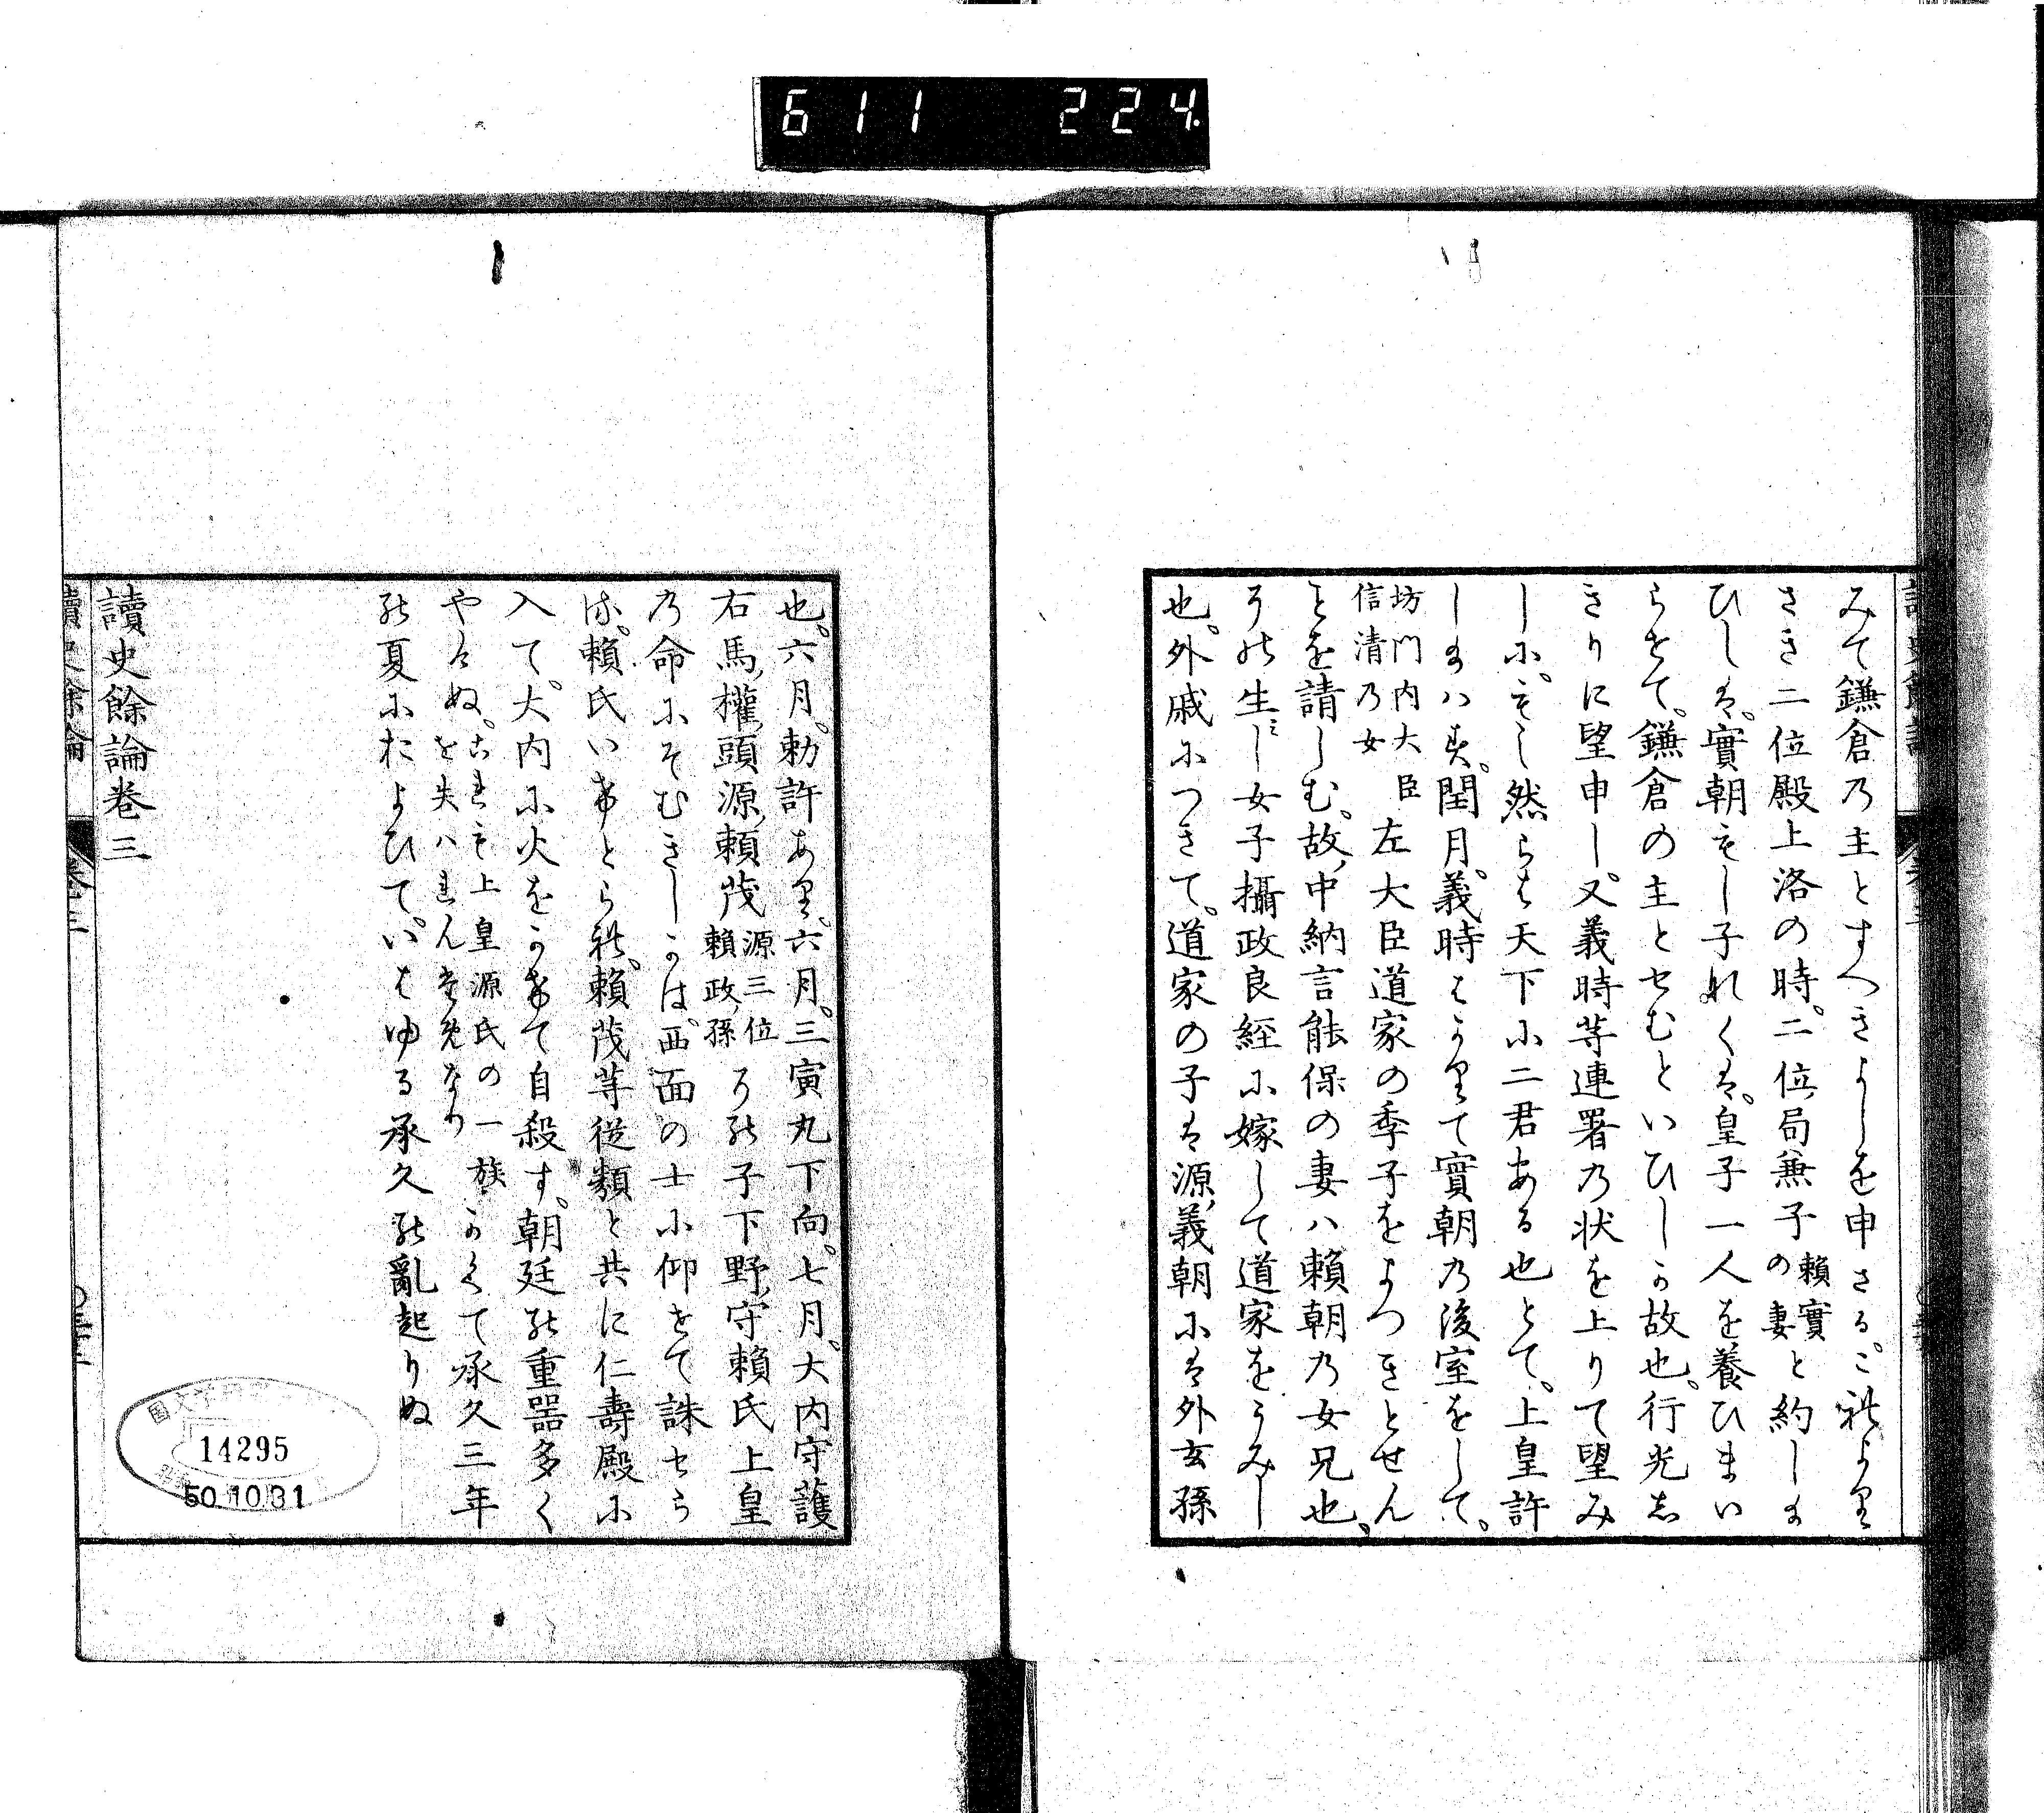 611 224
みて鎌倉乃主とすへきよしを申さる。これより
さき二位殿上洛の時。二位局兼子頼實の妻と約しま
ひしは。實朝もし子なくは。皇子一人を養ひまい
らせて。鎌倉の主とせむといひしか故也。行光志
きりに望申し。又義時等連署乃状を上りて望み
しに。もし然らは天下に二君ある也とて。上皇許
しまはす。閏月。義時はかりて實朝乃後室をして。
坊門内大臣信清乃女 左大臣道家の季子をよつきとせん
ことを請しむ。故中納言能保の妻ハ頼朝乃女兄也。
その生し女子攝政良経に嫁して道家をうみし
也。外戚につきて。道家の子は源義朝には外玄孫
也。六月。勅許あり。六月。三寅丸下向。七月。大内守護
右馬權頭源頼茂源三位頼政孫その子下野守頼氏上皇
乃命にそむきしかは。西面の士に仰せて誅せら
る。頼氏いけとられ。頼茂等従類と共に仁壽殿に
入て。大内に火をかけて自殺す。朝廷の重器多く
やけぬ。これも上皇源氏の一族を失ハれんためなり かくて承久三年
の夏におよひて。いはゆる承久の亂起りぬ
讀史餘論卷三
14295
50.10.31